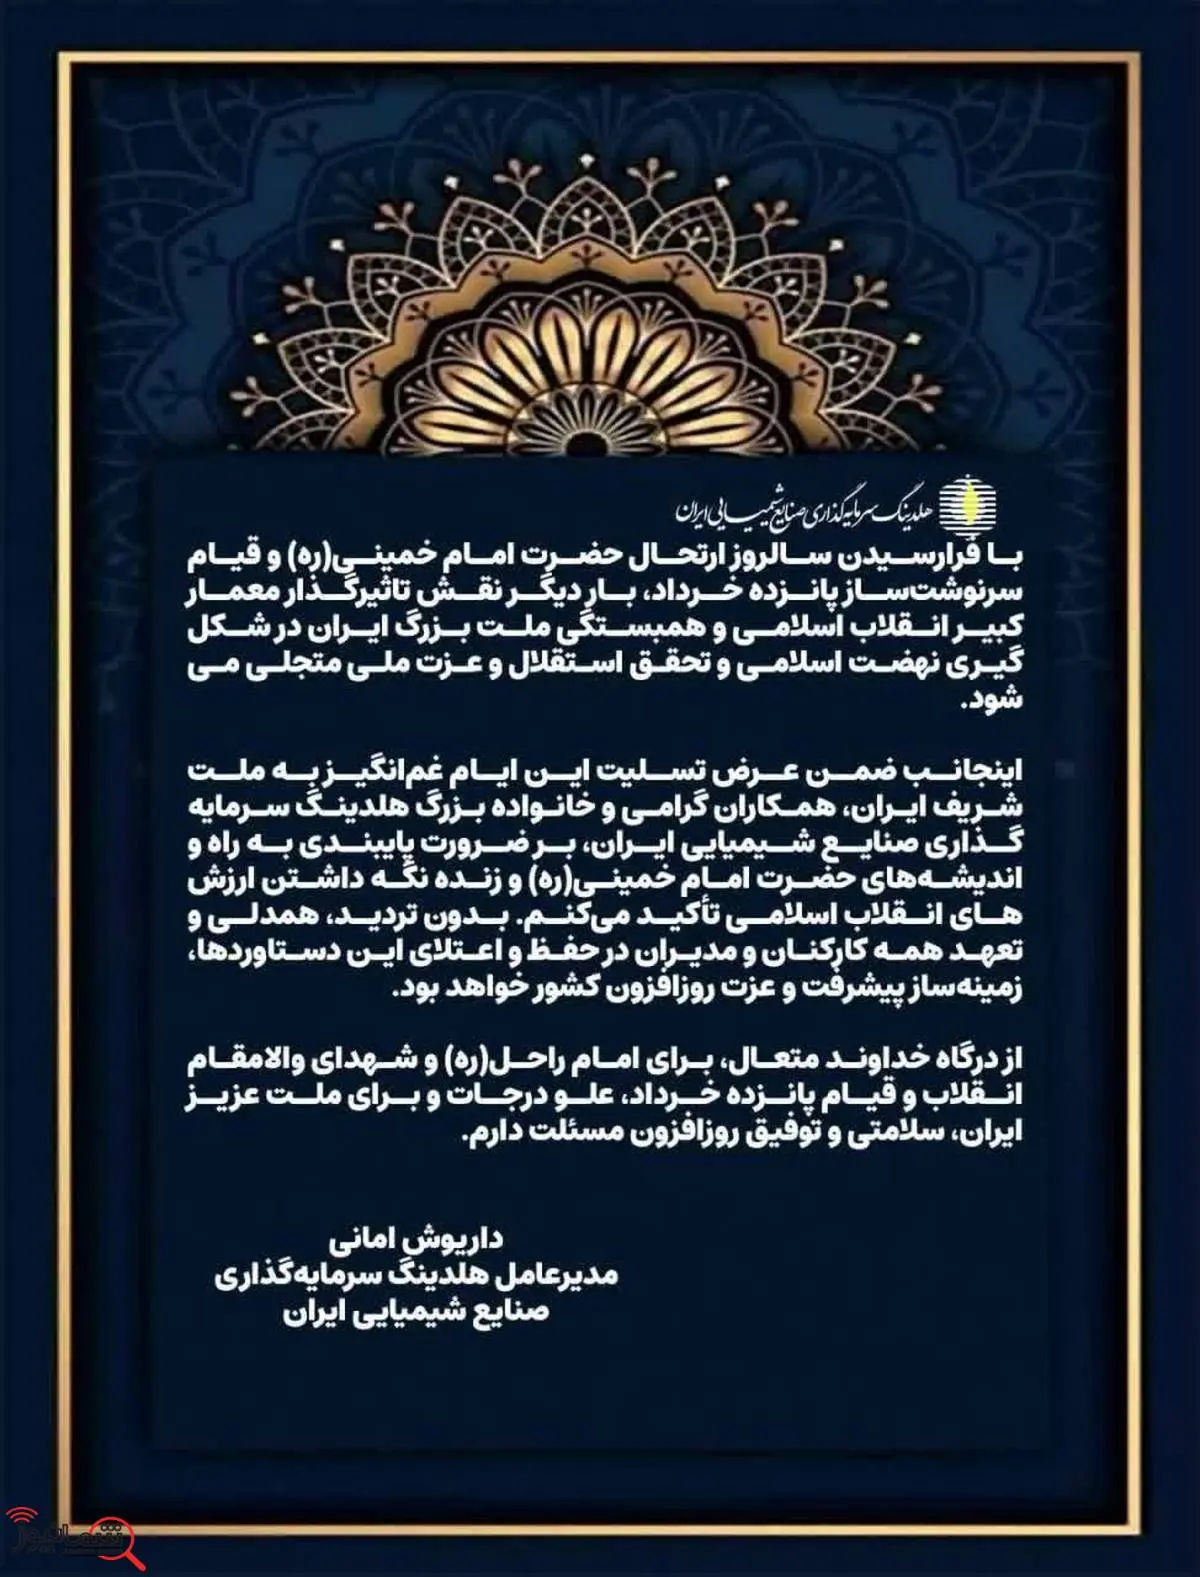 هلدینگ سرمایه‌گذاری صنایع شیمیایی ایران
با فرارسیدن سالروز ارتحال حضرت امام خمینی(ره) و قیام
سرنوشت‌ساز پانزده خرداد، بار دیگر نقش تاثیرگذار معمار
کبیر انقلاب اسلامی و همبستگی ملت بزرگ ایران در شکل
گیری نهضت اسلامی و تحقق استقلال و عزت ملی متجلی می
شود.
اینجانب ضمن عرض تسلیت این ایام غم‌انگیز به ملت
شریف ایران، همکاران گرامی و خانواده بزرگ هلدینگ سرمایه
گذاری صنایع شیمیایی ایران، بر ضرورت پایبندی به راه و
اندیشه‌های حضرت امام خمینی(ره) و زنده نگه داشتن ارزش
های انقلاب اسلامی تأکید می‌کنم. بدون تردید، همدلی و
تعهد همه کارکنان و مدیران در حفظ و اعتلای این دستاوردها،
زمینه‌ساز پیشرفت و عزت روزافزون کشور خواهد بود.
از درگاه خداوند متعال، برای امام راحل(ره) و شهدای والامقام
انقلاب و قیام پانزده خرداد، علو درجات و برای ملت عزیز
ایران، سلامتی و توفیق روزافزون مسئلت دارم.
داریوش امانی
مدیرعامل هلدینگ سرمایه‌گذاری
صنایع شیمیایی ایران
شمانیوز